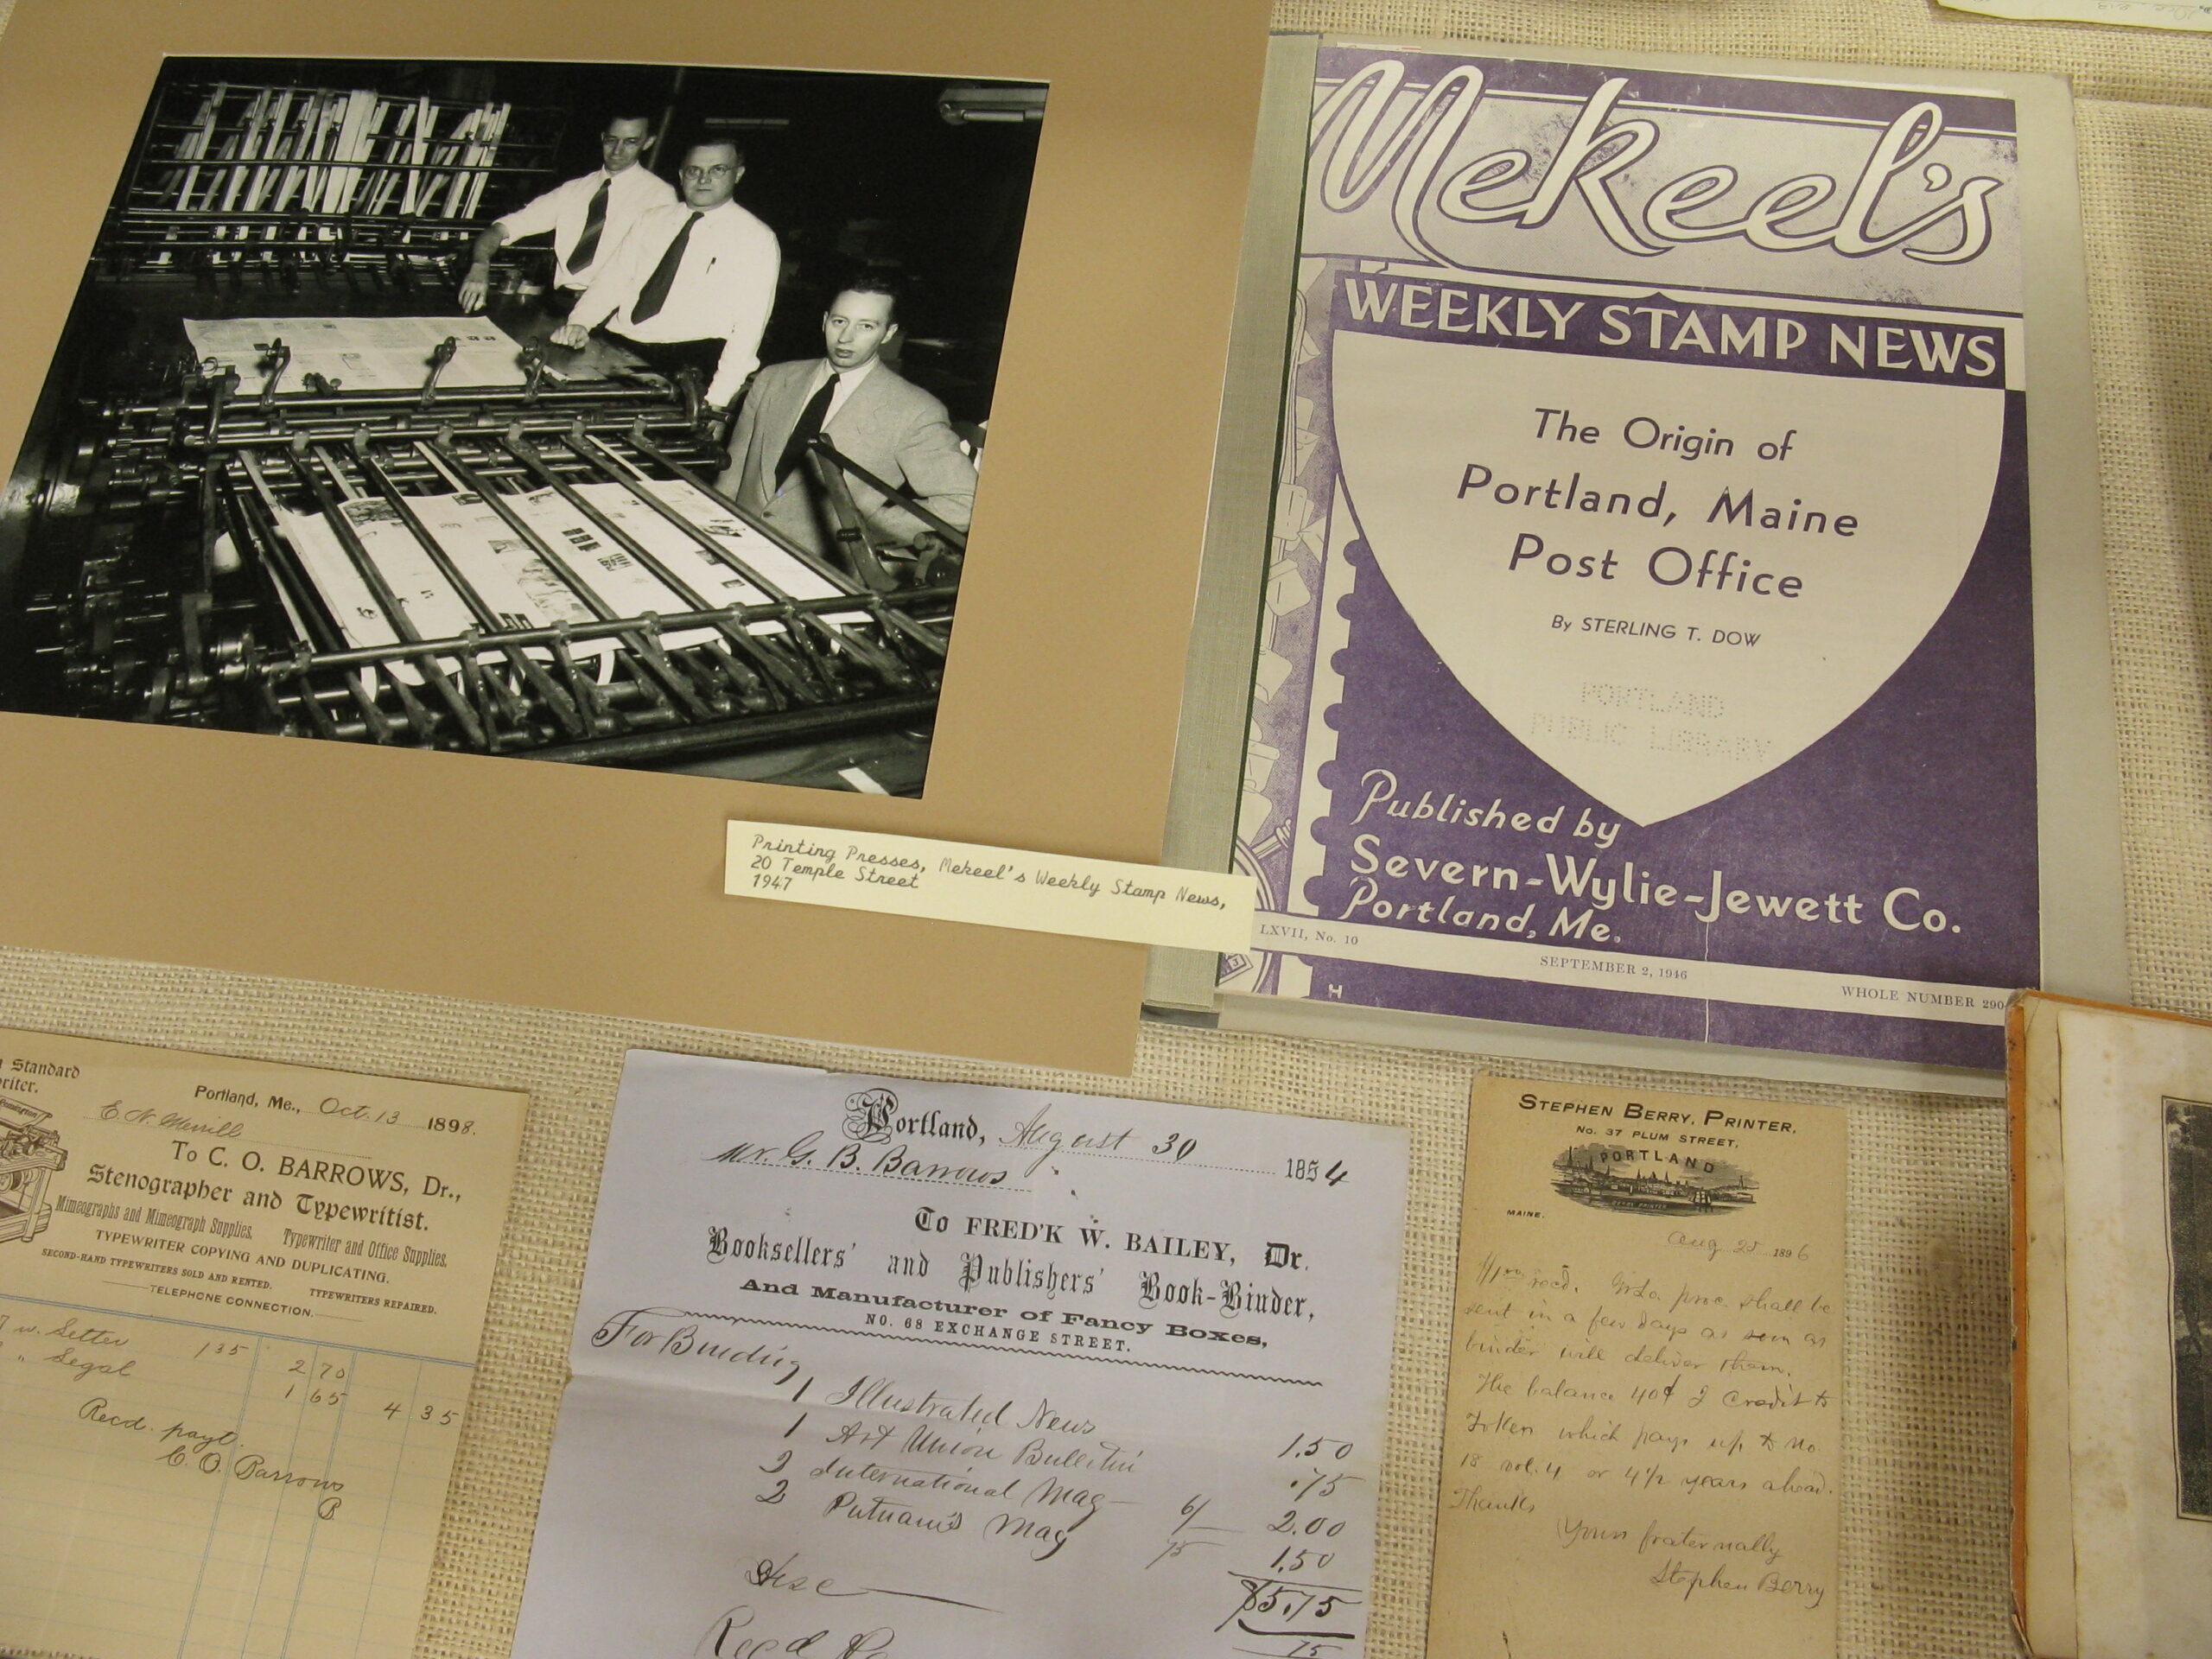 Mekeel's
WEEKLY STAMP NEWS
The Origin of
Portland, Maine
Post Office
By STERLING T. DOW
PORTLAND
PUBLIC LIBRARY
Published by
Severn-Wylie-Jewett Co.
Portland, Me.
LXVII, No. 10
SEPTEMBER 2, 1946
WHOLE NUMBER 290
H
Printing Presses, Mekeel's Weekly Stamp News,
20 Temple Street
1947
Standard
Portland, Me., Oct. 13 1898.
E. N. Merrill
To C. O. BARROWS, Dr.,
Stenographer and Typewritist.
Mimeographs and Mimeograph Supplies. Typewriter and Office Supplies.
TYPEWRITER COPYING AND DUPLICATING.
SECOND-HAND TYPEWRITERS SOLD AND RENTED. TYPEWRITERS REPAIRED.
TELEPHONE CONNECTION.
w. Letter 135 2 70
" Legal 1 65 4 35
Recd. payt.
C. O. Barrows
B
Portland, August 30 1854
Mr. G. B. Barrows
To FRED'K W. BAILEY, Dr.
Booksellers' and Publishers' Book-Binder,
And Manufacturer of Fancy Boxes,
NO. 68 EXCHANGE STREET.
For Binding
1 Illustrated News 1.50
1 Art Union Bulletin .75
2 International Mag 6/ 2.00
2 Putnam's Mag 75 1.50
$5.75
75
Recd
STEPHEN BERRY, PRINTER,
No. 37 PLUM STREET,
PORTLAND
MAINE.
Aug 25 1896
recd. proc. shall be
sent in a few days as soon as
binder will deliver them.
The balance 40¢ I credit to
Token which pays up to No.
18 vol. 4 or 4 1/2 years ahead.
Thanks
Yours fraternally
Stephen Berry